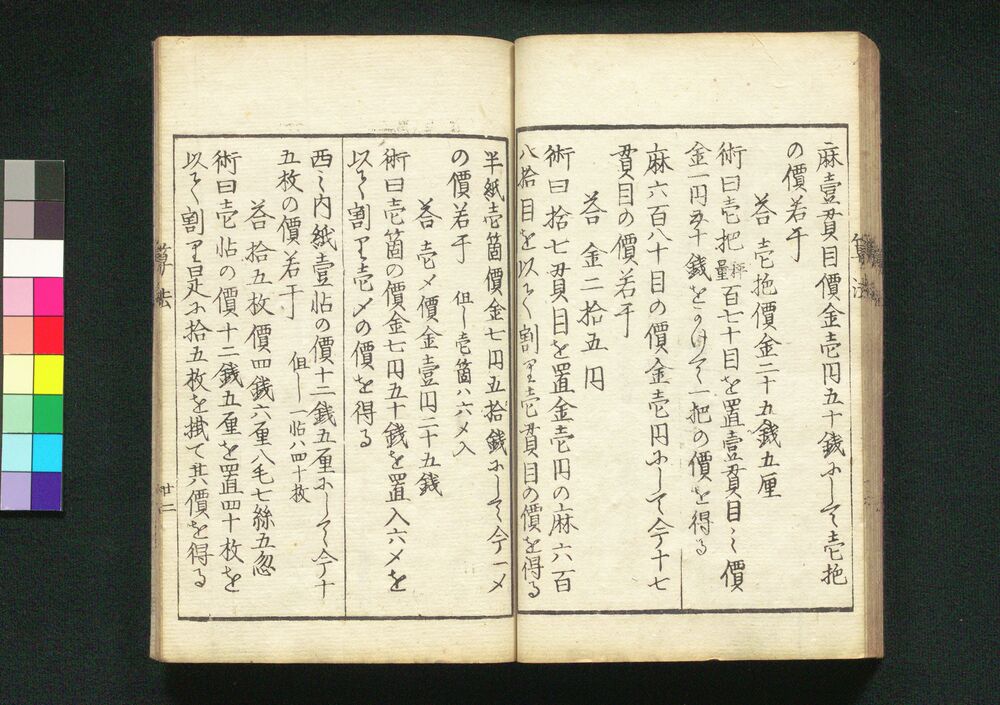 麻壹貫目價金壱円五十銭にして壱把
の價若干
答 壱把價金二十五銭五厘
術曰壱把秤量百七十目を置壹貫目之價
金一円五十銭をかけて一把の價を得る
麻六百八十目の價金壱円にして今十七
貫目の價若干
答 金二拾五円
術曰拾七貫目を置金壱円の麻六百
八拾目を以て割り壱貫目の價を得る
半紙壱箇價金七円五拾銭にして今一〆
の價若干 但し壱箇ハ六〆入
答 壱〆價金壹円二十五銭
術曰壱箇の價金七円五十銭を置入六〆を
以て割り壱〆の價を得る
西之内紙壹帖の價十二銭五厘にして今十
五枚の價若干 但し一帖ハ四十枚
答 拾五枚價四銭六厘八毛七絲五忽
術曰壱帖の價十二銭五厘を置四十枚を
以て割り是に拾五枚を掛て其價を得る
算法
廿二